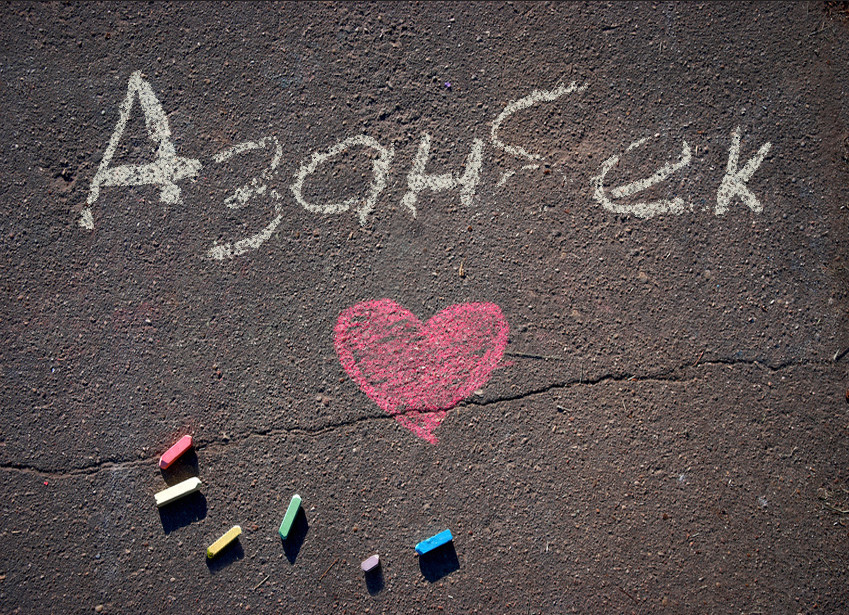 Азанбек